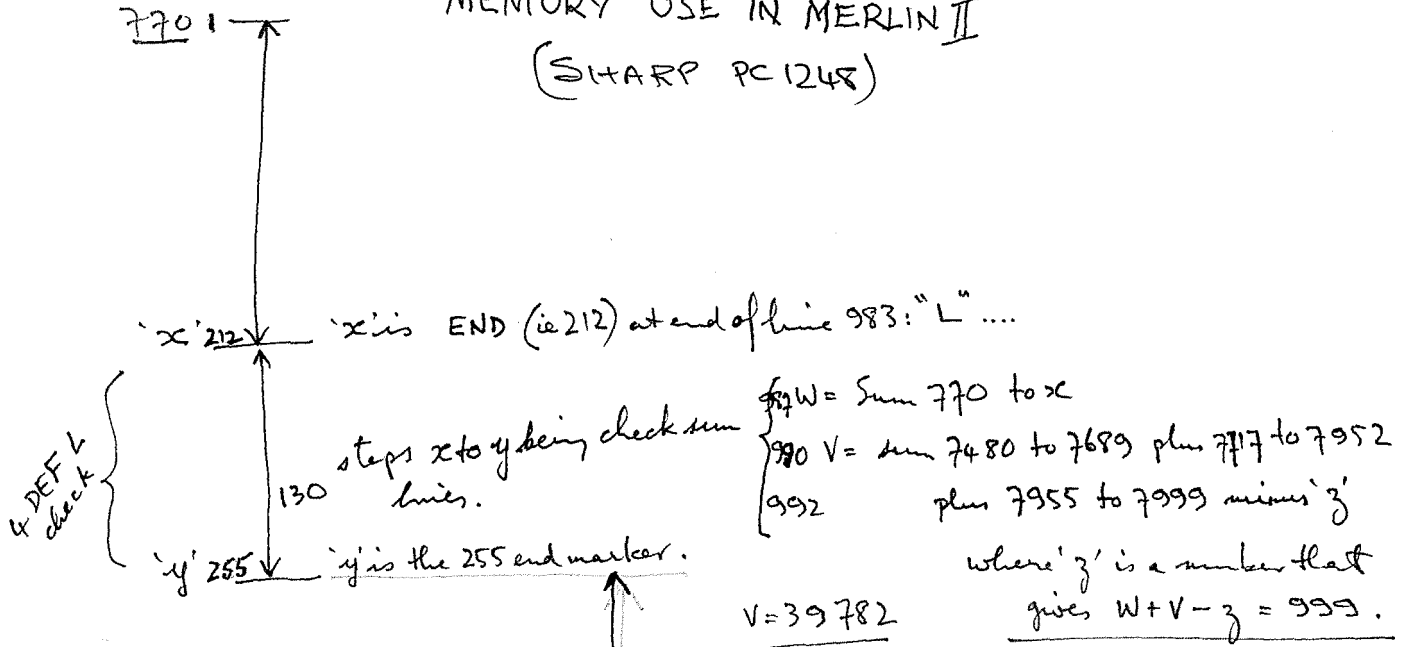 MEMORY USE IN MERLIN II
(SHARP PC 1248)
770 1
'x' 212 'x' is END (ie 212) at end of line 983: "L" ....
4 DEF L check
130
steps x to y being check sum lines.
987 W = Sum 770 to x
990 V = sum 7480 to 7689 plus 7717 to 7952
992 plus 7955 to 7999 minus 'z'
'y' 255 'y' is the 255 end marker.
where 'z' is a number that
V = 39782 gives W + V - z = 999.